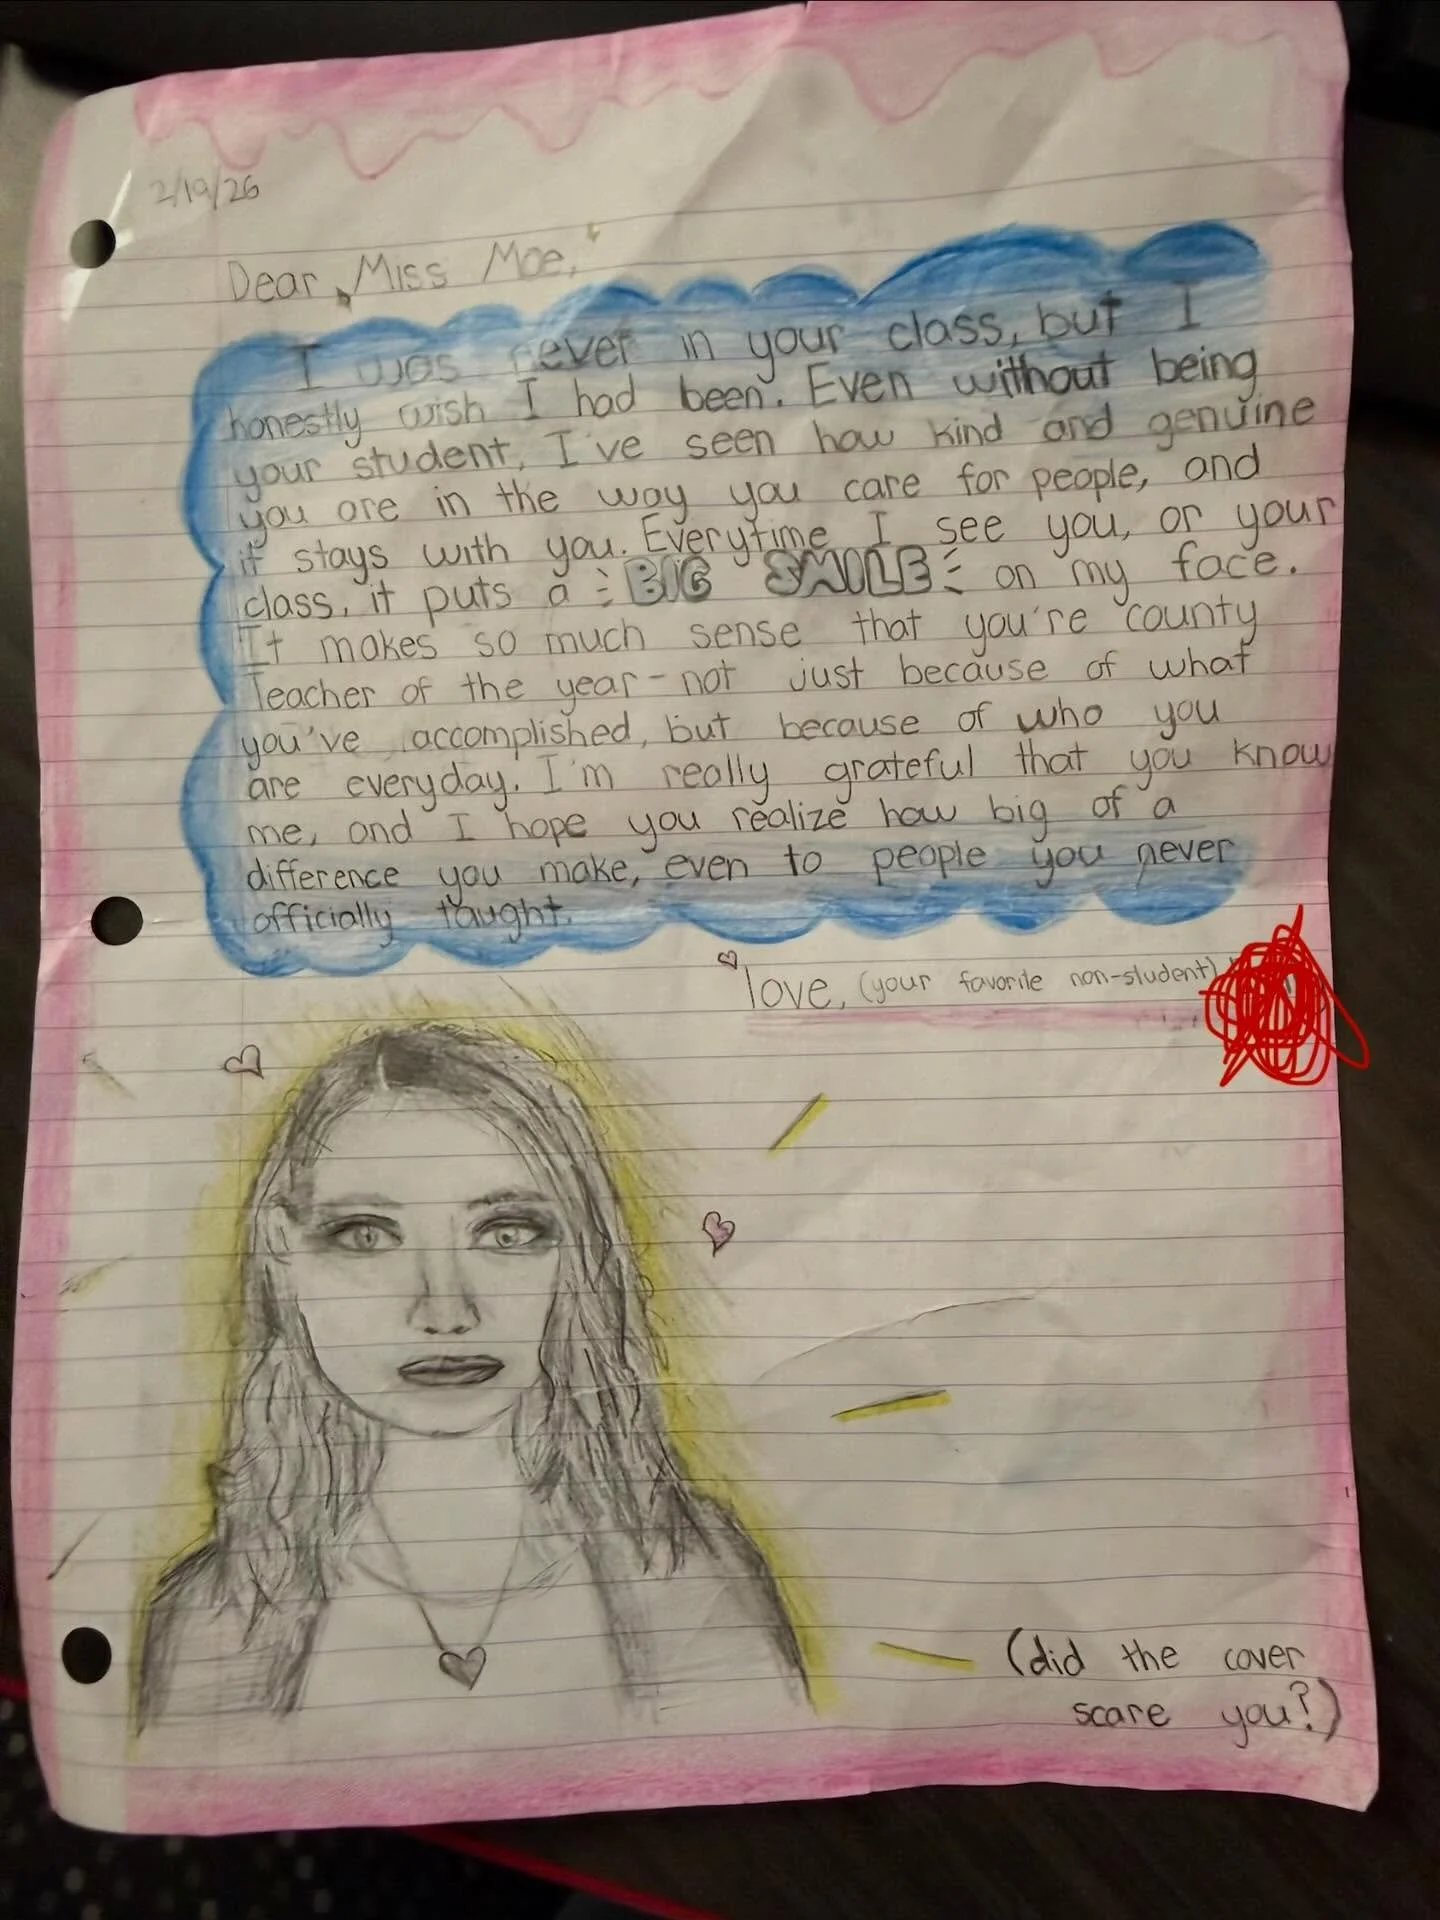 2/19/26
Dear Miss Moe,
I was never in your class, but I
honestly wish I had been. Even without being
your student, I've seen how kind and genuine
you are in the way you care for people, and
it stays with you. Everytime I see you, or your
class, it puts a BIG SMILE on my face.
It makes so much sense that you're county
Teacher of the year-not just because of what
you've accomplished, but because of who you
are everyday. I'm really grateful that you know
me, and I hope you realize how big of a
difference you make, even to people you never
officially taught.
love, (your favorite non-student)
(did the cover
scare you?)